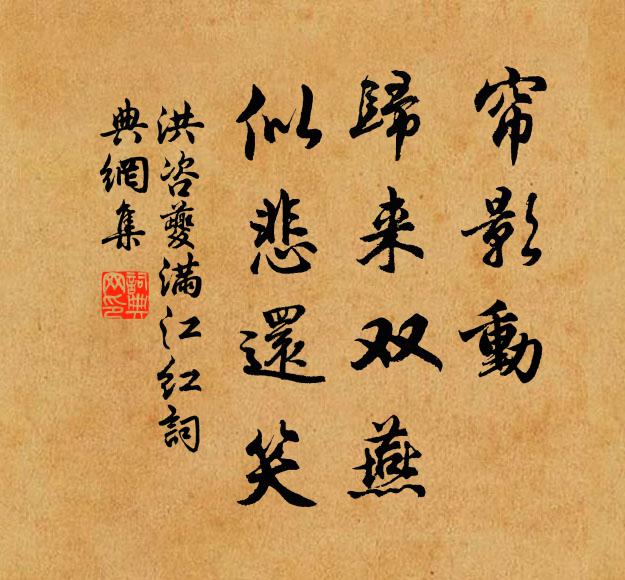 帘影動
歸来双燕
似悲還笑
洪咨夔满江红詞
典網集
詞典网印